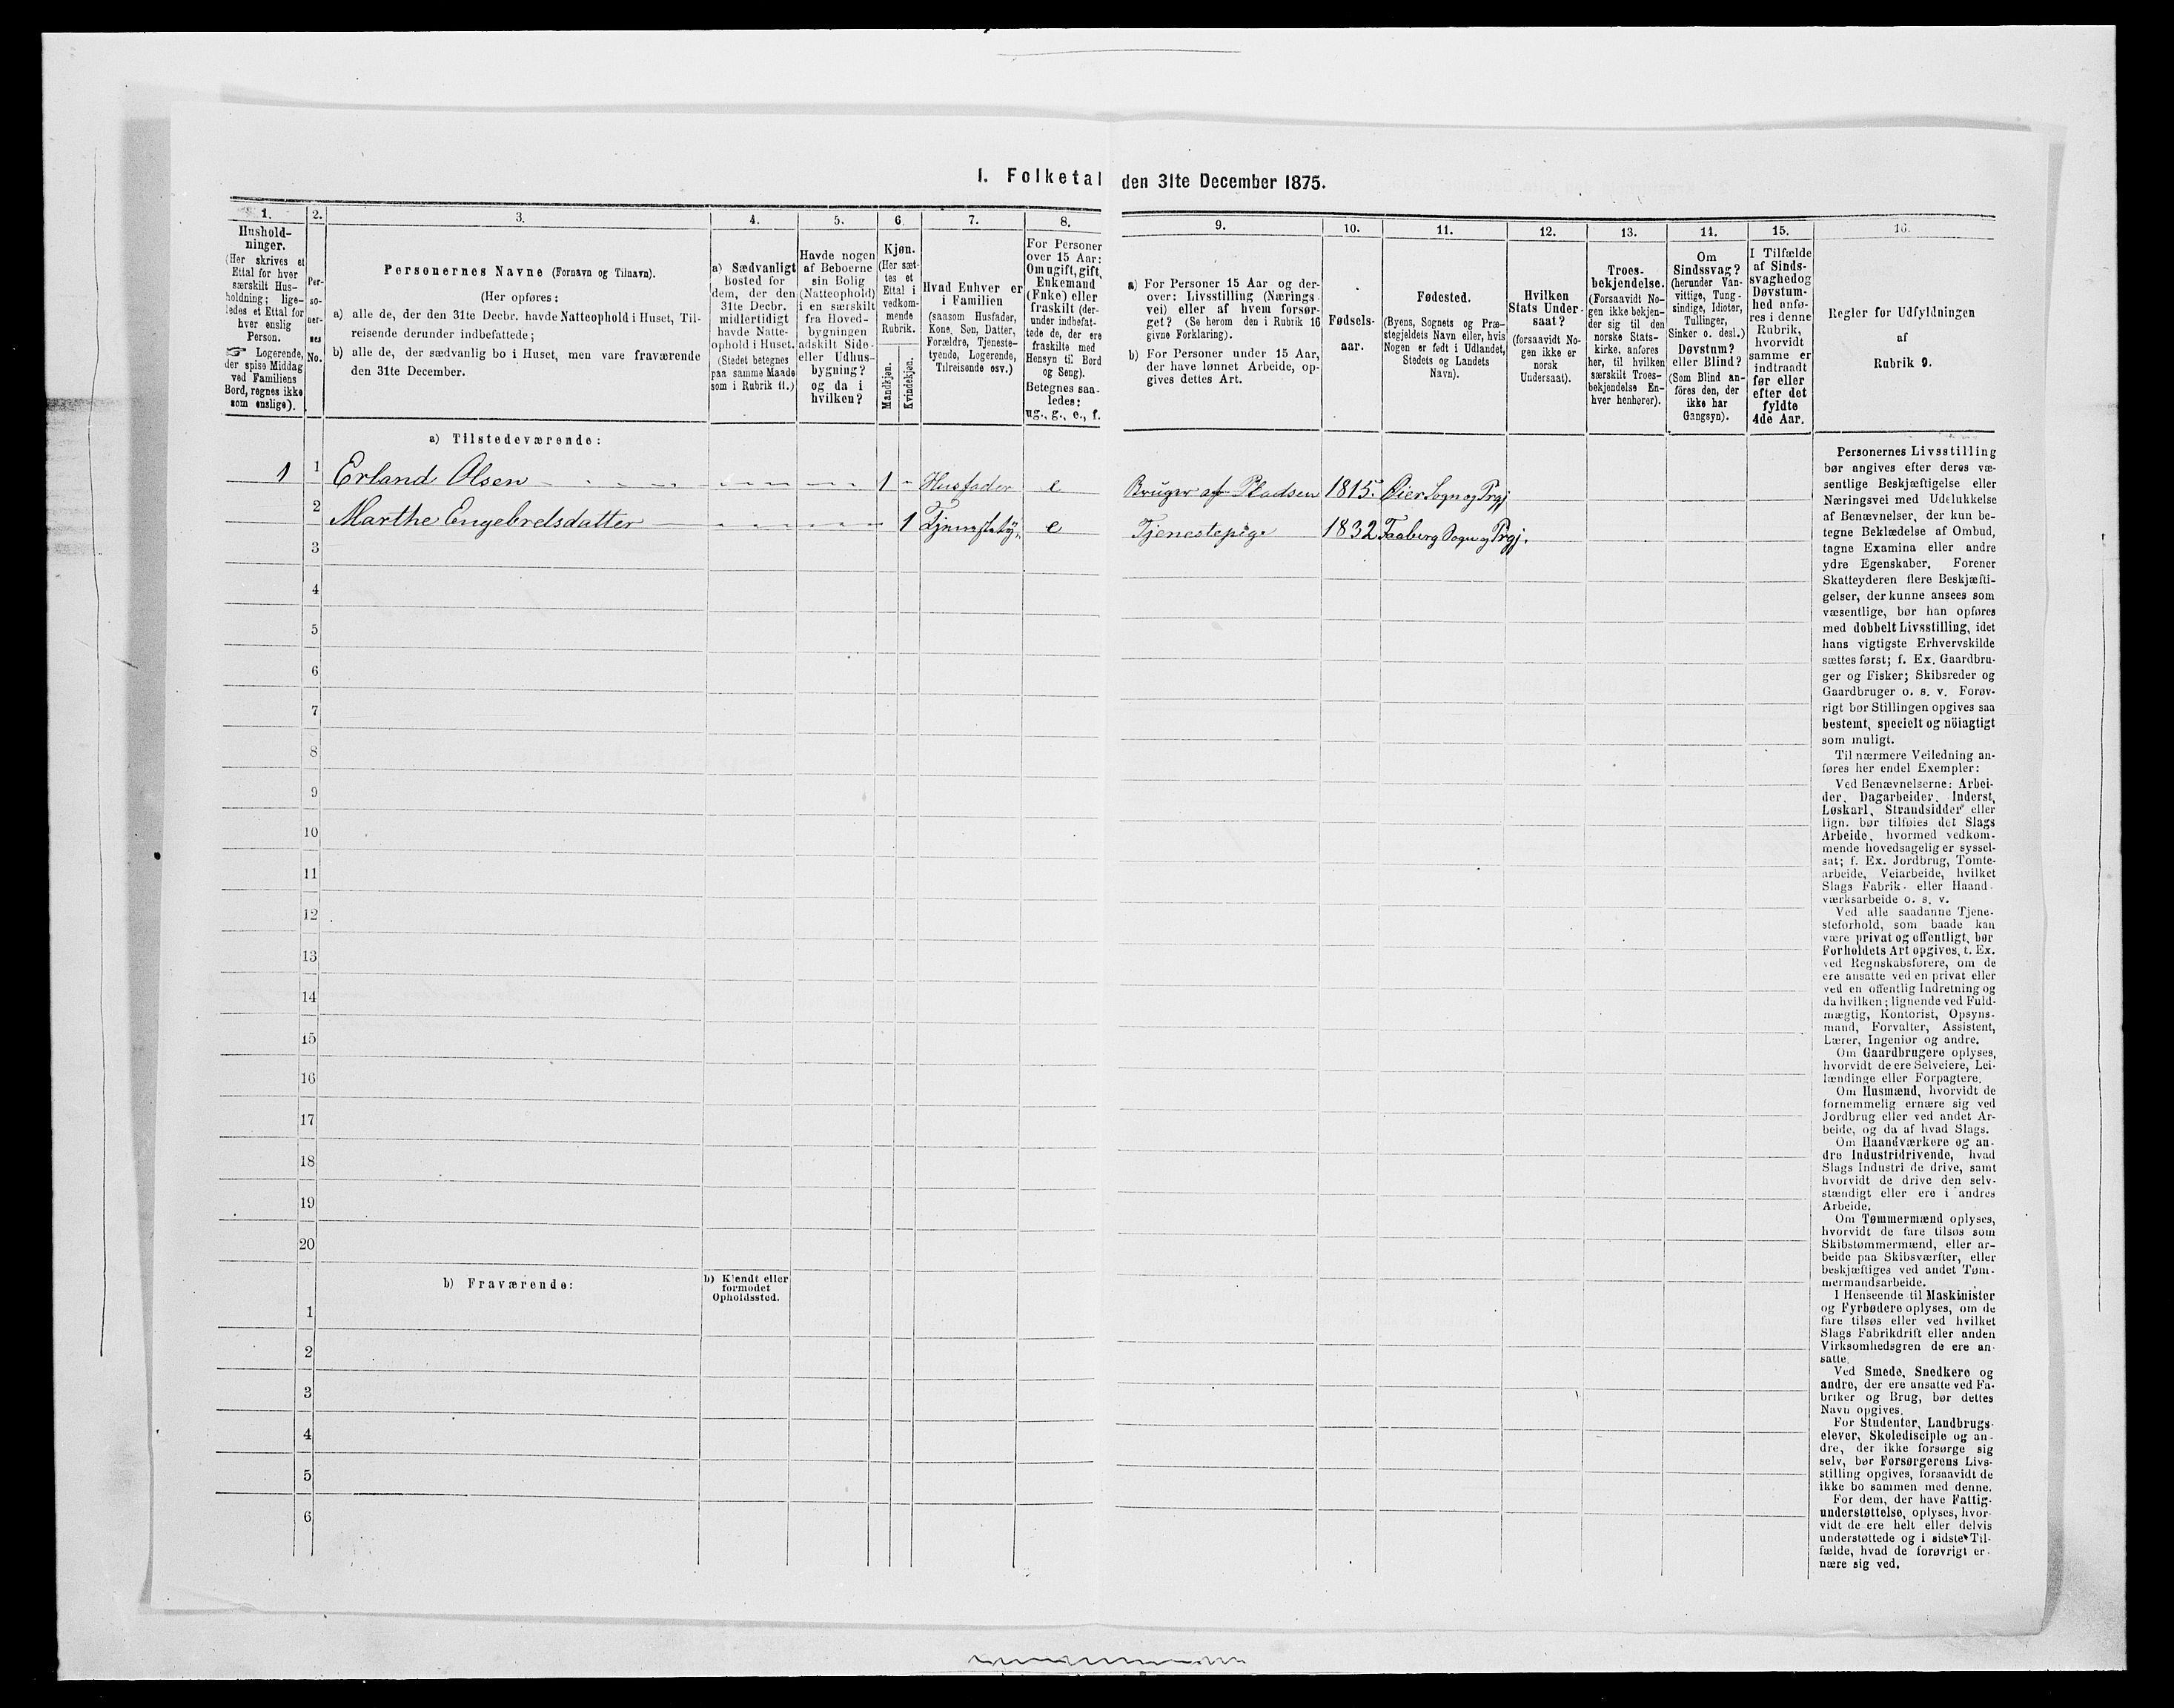 I. Folketal den 31te December 1875.
1.
Hushold-
ninger.
(Her skrives et
Ettal for hver
særskilt Hus-
holdning; lige-
ledes et Ettal for
hver enslig
Person.
☞ Logerende,
der spise Middag
ved Familiens
Bord, regnes ikke
som enslige).
2.
Per-
so-
ner-
nes
No.
3.
Personernes Navne (Fornavn og Tilnavn).
(Her opføres:
a) alle de, der den 31te Decbr. havde Natteophold i Huset, Til-
reisende derunder indbefattede;
b) alle de, der sædvanlig bo i Huset, men vare fraværende
den 31te December.
4.
a) Sædvanligt
Bosted for
dem, der den
31te Decbr.
midlertidigt
havde Natte-
ophold i Huset.
(Stedet betegnes
paa samme Maade
som i Rubrik 11.)
5.
Havde nogen
af Beboerne
sin Bolig
(Natteophold)
i en særskilt
fra Hoved-
bygningen
adskilt Side-
eller Udhus-
bygning?
og da i
hvilken?
6.
Kjøn.
(Her sæt-
tes et
Ettal i
vedkom-
mende
Rubrik.
Mandkjøn.
Kvindekjøn.
7.
Hvad Enhver er
i Familien
(saasom Husfader,
Kone, Søn, Datter,
Forældre, Tjeneste-
tyende, Logerende,
Tilreisende osv.)
8.
For Personer
over 15 Aar:
Om ugift, gift,
Enkemand
(Enke) eller
fraskilt (der-
under indbefat-
tede de, der ere
fraskilte med
Hensyn til Bord
og Seng).
Betegnes saa-
ledes:
ug., g., e., f.
9.
a) For Personer 15 Aar og der-
over: Livsstilling (Nærings-
vei) eller af hvem forsør-
get? (Se herom den i Rubrik 16
givne Forklaring).
b) For Personer under 15 Aar,
der have lønnet Arbeide, op-
gives dettes Art.
10.
Fødsels-
aar.
11.
Fødested.
(Byens, Sognets og Præ-
stegjeldets Navn eller, hvis
Nogen er født i Udlandet,
Stedets og Landets
Navn).
12.
Hvilken
Stats Under-
saat?
(forsaavidt No-
gen ikke er
norsk
Undersaat).
13.
Troes-
bekjendelse.
(Forsaavidt No-
gen ikke bekjen-
der sig til den
norske Stats-
kirke, anføres
her, til hvilken
særskilt Troes-
bekjendelse En-
hver henhører).
14.
Om
Sindssvag?
(herunder Van-
vittige, Tung-
sindige, Idioter,
Tullinger,
Sinker o. desl.)
Døvstum?
eller Blind?
(Som Blind an-
føres den, der
ikke har
Gangsyn).
15.
I Tilfælde
af Sinds-
svaghed og
Døvstum-
hed anfø-
res i denne
Rubrik,
hvorvidt
samme er
indtraadt
før eller
efter det
fyldte
4de Aar.
16.
Regler for Udfyldningen
af
Rubrik 9.
a) Tilstedeværende:
1 1 Erland Olsen 1 Husfader e Bruger af Pladsen 1815 Øier Sogn og Prgj
2 Marthe Engebretsdatter 1 e Tjenestepige 1832 Faaberg Sogn og Prgj.
3
4
5
6
7
8
9
10
11
12
13
14
15
16
17
18
19
20
b) Fraværende:
b) Kjendt eller
formodet
Opholdssted.
1
2
3
4
5
6
Personernes Livsstilling
bør angives efter deres væ-
sentlige Beskjæftigelse eller
Næringsvei med Udelukkelse
af Benævnelser, der kun be-
tegne Beklædelse af Ombud,
tagne Examina eller andre
ydre Egenskaber. Forener
Skatteyderen flere Beskjæfti-
gelser, der kunne ansees som
væsentlige, bør han opføres
med dobbelt Livsstilling, idet
hans vigtigste Erhvervskilde
sættes først; f. Ex. Gaardbru-
ger og Fisker; Skibsreder og
Gaardbruger o. s. v. Forøv-
rigt bør Stillingen opgives saa
bestemt, specielt og nöiagtigt
som muligt.
Til nærmere Veiledning an-
føres her endel Exempler:
Ved Benævnelserne: Arbei-
der, Dagarbeider, Inderst,
Løskarl, Strandsidder eller
lign. bør tilføies det Slags
Arbeide, hvormed vedkom-
mende hovedsagelig er syssel-
sat; f. Ex. Jordbrug, Tomte-
arbeide, Veiarbeide, hvilket
Slags Fabrik- eller Haand-
værksarbeide o. s. v.
Ved alle saadanne Tjene-
steforhold, som baade kan
være privat og offentligt, bør
Forholdets Art opgives, t. Ex.
ved Regnskabsførere, om de
ere ansatte ved en privat eller
ved en offentlig Indretning og
da hvilken; lignende ved Fuld-
mægtig, Kontorist, Opsyns-
mand, Forvalter, Assistent,
Lærer, Ingeniør og andre.
Om Gaardbrugere oplyses,
hvorvidt de ere Selveiere, Lei-
lændinge eller Forpagtere.
Om Husmænd, hvorvidt de
fornemmelig ernære sig ved
Jordbrug eller ved andet Ar-
beide, og da af hvad Slags.
Om Haandværkere og an-
dre Industridrivende, hvad
Slags Industri de drive, samt
hvorvidt de drive den selv-
stændigt eller ere i andres
Arbeide.
Om Tømmermænd oplyses,
hvorvidt de fare tilsøs som
Skibstømmermænd, eller ar-
beide paa Skibsværfter, eller
beskjæftiges ved andet Tøm-
mermandsarbeide.
I Henseende til Maskinister
og Fyrbødere oplyses, om de
fare tilsøs eller ved hvilket
Slags Fabrikdrift eller anden
Virksomhedsgren de ere an-
satte.
Ved Smede, Snedkere og
andre, der ere ansatte ved Fa-
briker og Brug, bør dettes
Navn opgives.
For Studenter, Landbrugs-
elever, Skoledisciple og an-
dre, der ikke forsørge sig
selv, bør Forsørgerens Livs-
stilling opgives, forsaavidt de
ikke bo sammen med denne.
For dem, der have Fattig-
understøttelse, oplyses, hvor-
vidt de ere helt eller delvis
understøttede og i sidste Til-
fælde, hvad de forøvrigt er-
nære sig ved.